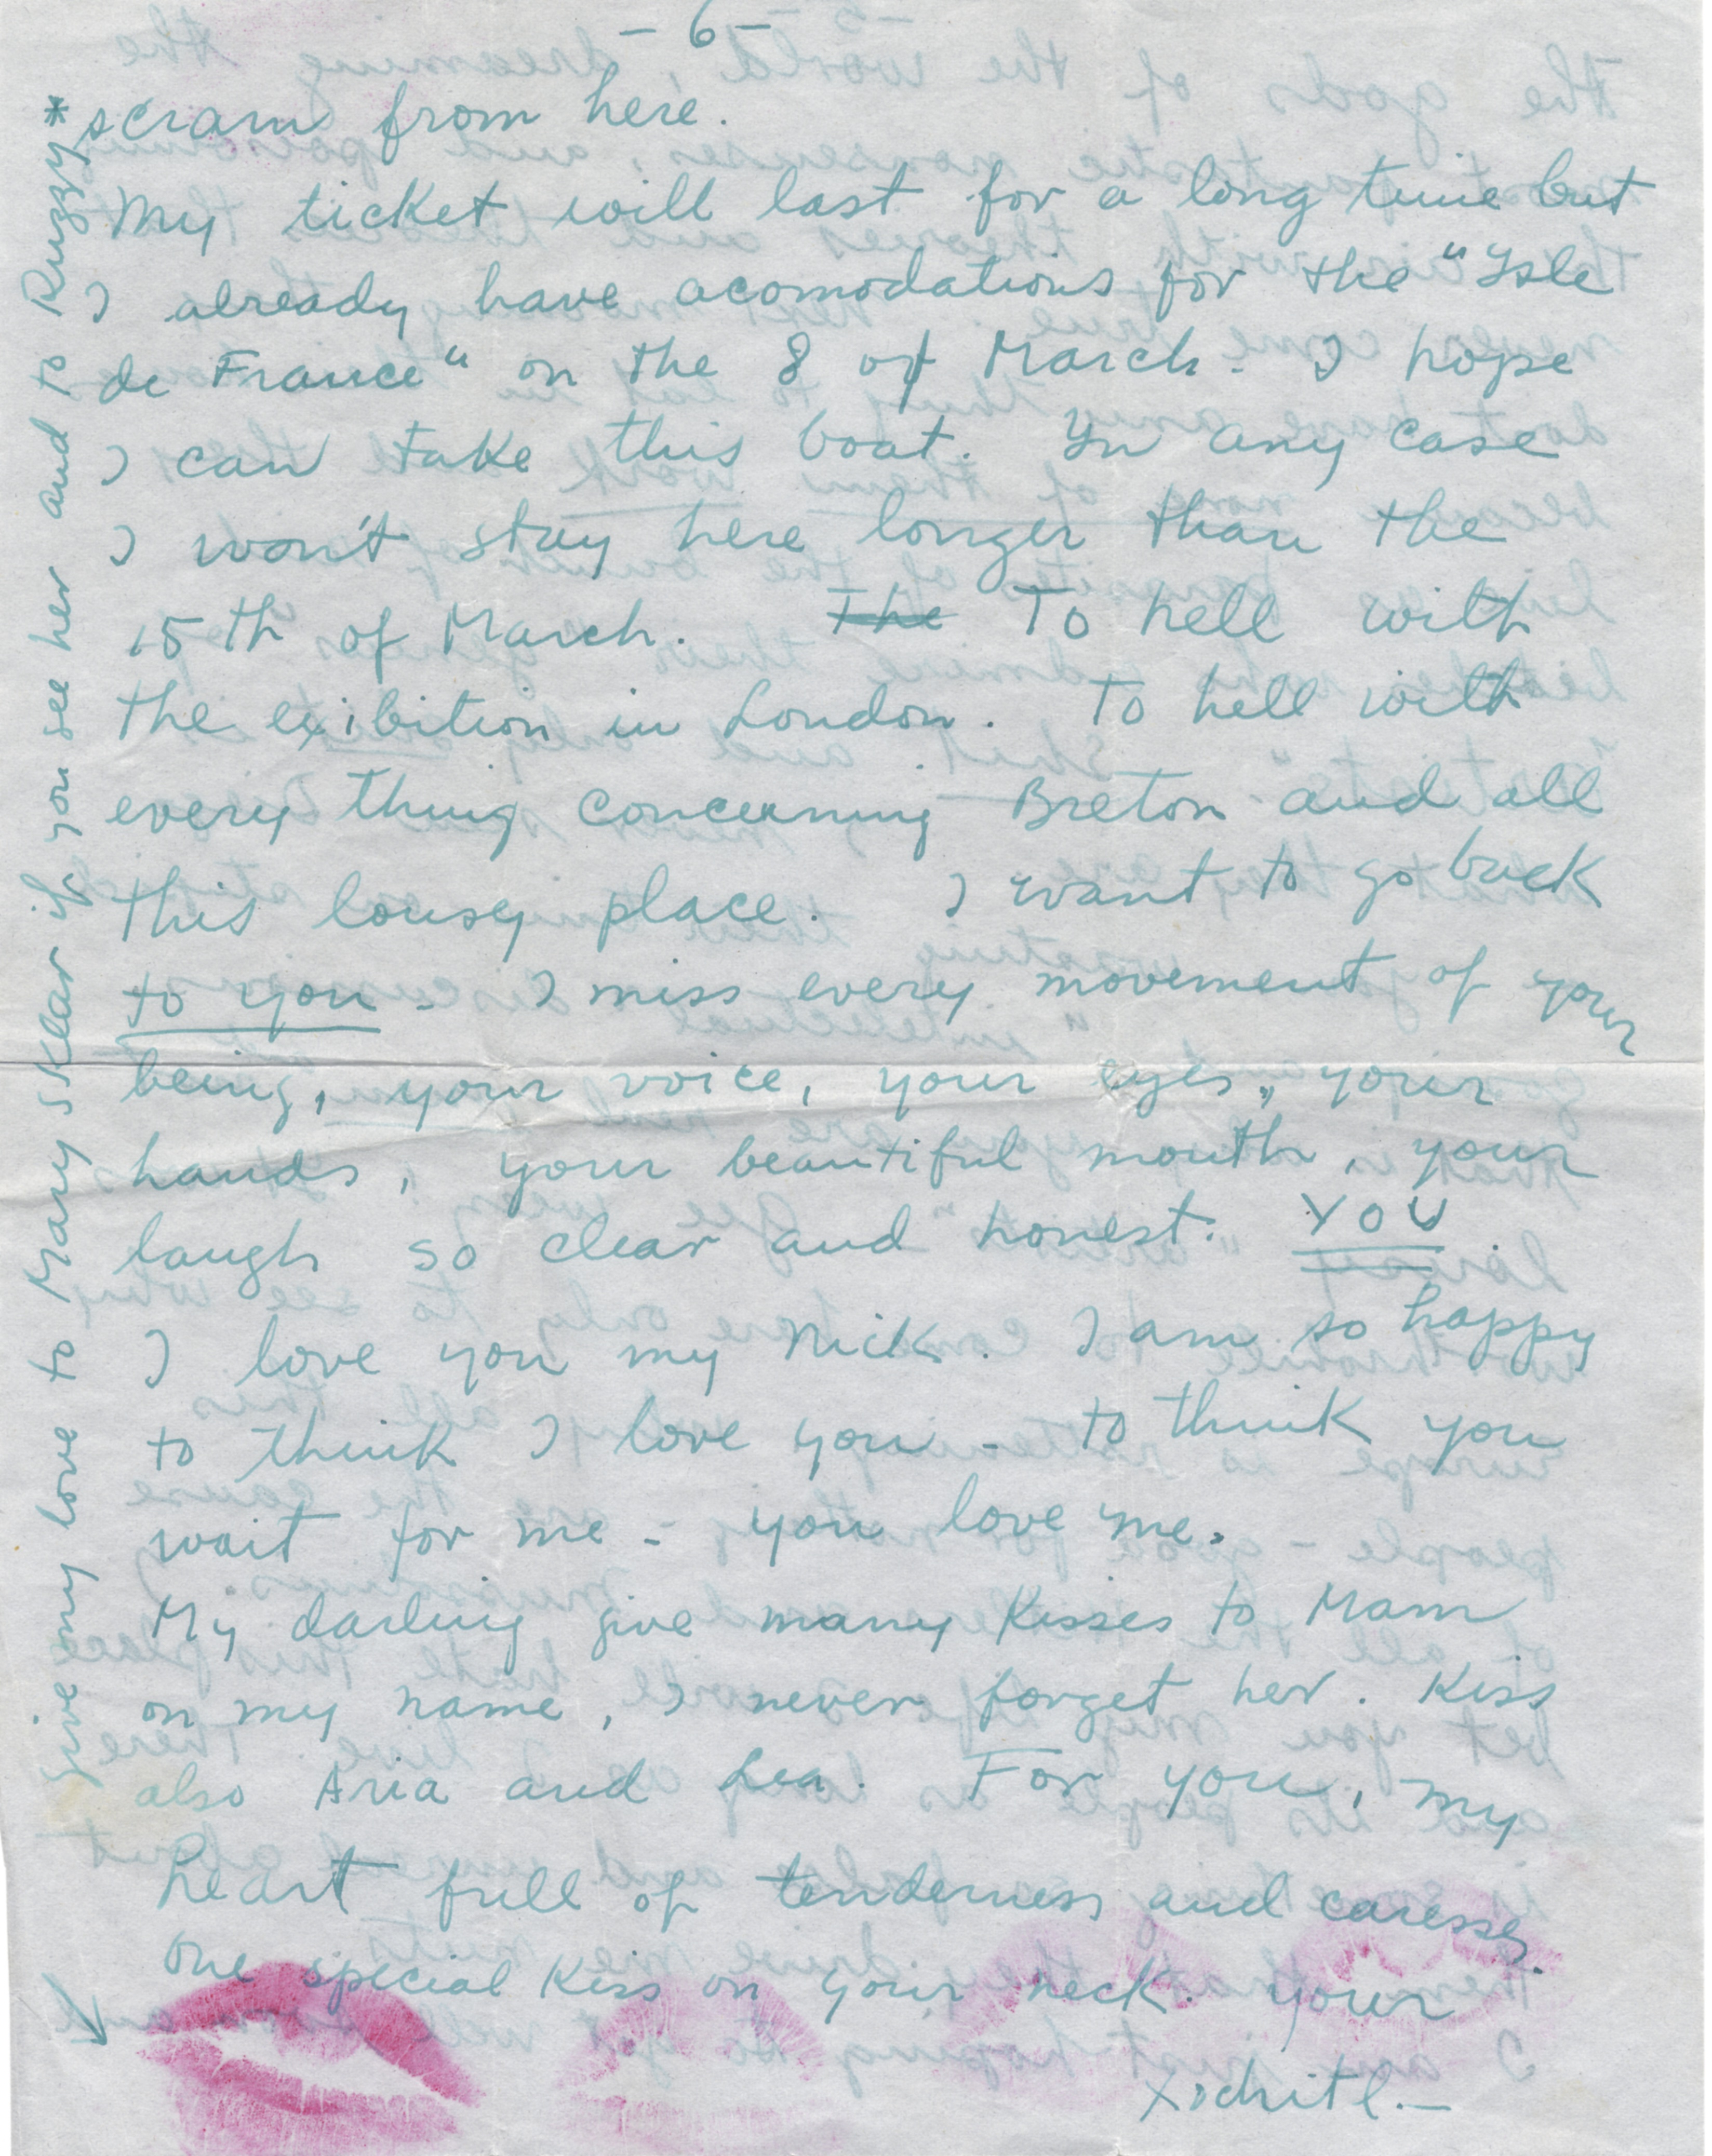 - 6 -
scram from here.
My ticket will last for a long time but
I already have acomodations for the "Isle
de France" on the 8 of March. I hope
I can take this boat. In any case
I won't stay here longer than the
15th of March. The To hell with
the exibition in London. To hell with
every thing concerning Breton and all
this lousy place. I want to go back
to you - I miss every movement of your
being, your voice, your eyes, your
hands, your beautiful mouth, your
laugh so clear and honest. YOU.
I love you my Nick. I am so happy
to think I love you - to think you
wait for me - you love me.
My darling give many kisses to Mam
on my name, I never forget her. Kiss
also Aria and Lea. For you, my
heart full of tenderness and caresses.
One special kiss on your neck. your
Xochitl.—
give my love to Mary Sklar if you see her and to Ruzzy*